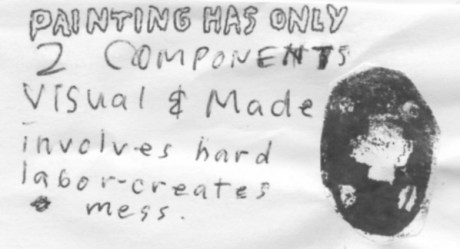 PAINTING HAS ONLY
2 COMPONENTS
VISUAL & Made
involves hard
labor-creates
mess.